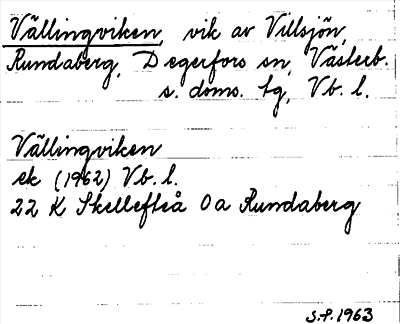 Vällingviken, vik av Villsjön,
Rundaberg, Degerfors sn, Västerb.
s. doms. tg, Vb. l.
Vällingviken
ek (1962) Vb. l.
22 K Skellefteå 0a Rundaberg
S.P. 1963